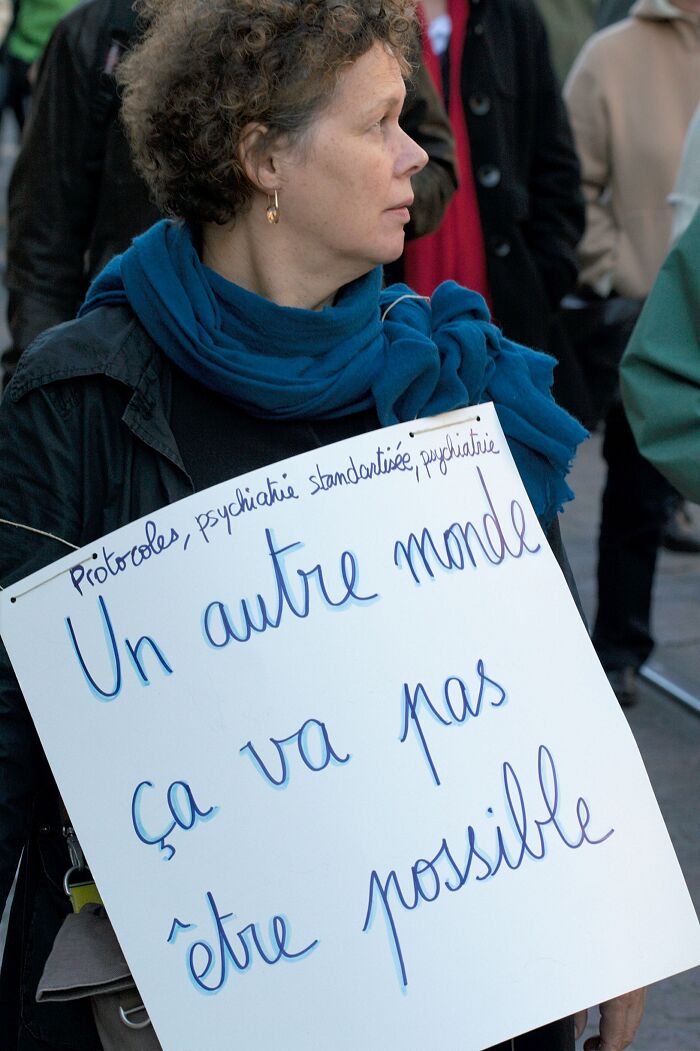 Protocoles, psychiatrie standartisée, psychiatrie
Un autre monde
ça va pas
être possible